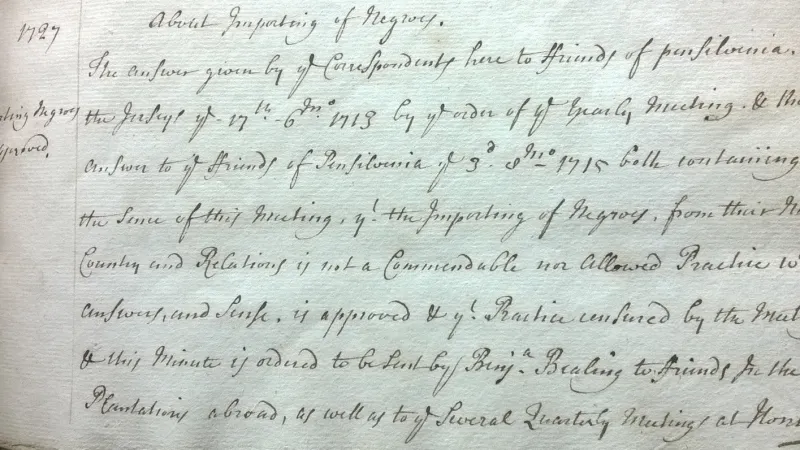 1727
About Importing of Negroes.
The answer given by ye Correspondents here to Friends of pensilvinia.
the Jerseys ye 17th 6mo 1713 by ye order of ye Yearly Meeting. & the
ting Negroes
answer to ye Friends of Pensilvenia ye 3d 8mo 1715 both containing
proved,
the Sence of this Meeting, yt the Importing of Negroes, from their
Country and Relations is not a Commendable nor allowed Practice
answers, and Sense, is approved & yt Practice censured by the
& this Minute is ordered to be Sent by Benja Bealing to Friends In the
Plantations abroad, as well as to ye Several Quarterly Meetings at